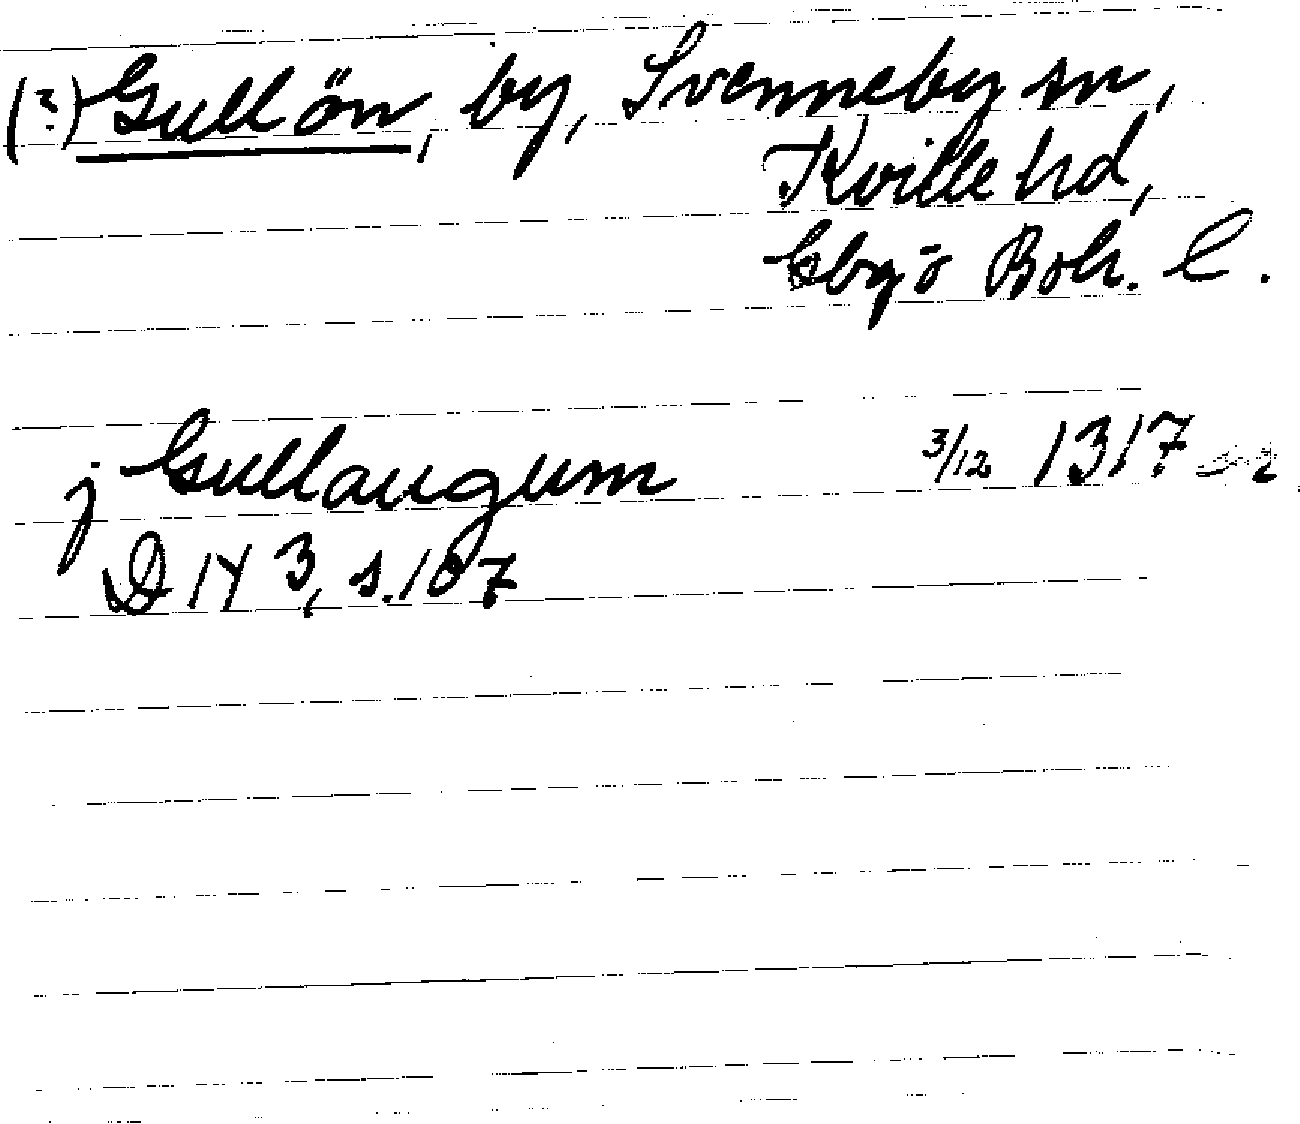 (?) Gullön, by, Svenneby sn,
Kville hd,
Gbgo Boh. l.
j Gullaugum 3/12 1317
D IV 3, s. 107